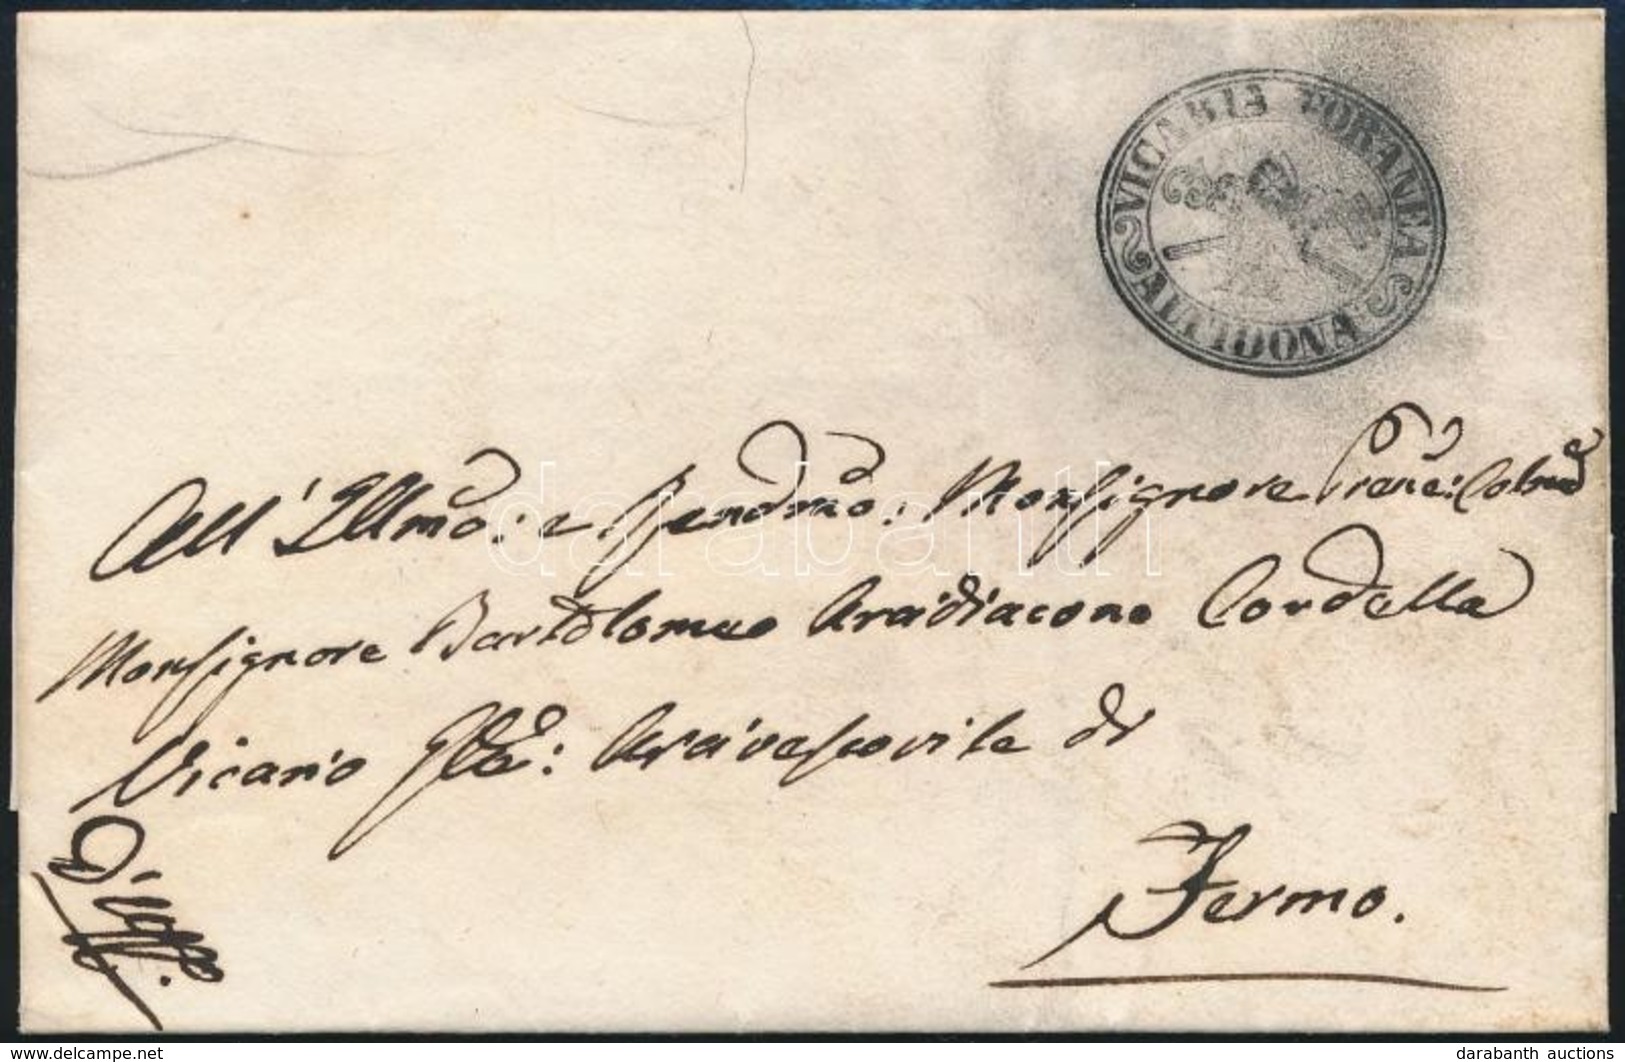 VICARIA FORANEA
ALTIDONA
All' Illmo: e Rendmo: Monsignore
Monsignore Bartolomeo Arcidiacono Cordella
Vicario Gle: Arcivescovile di
Fermo.
D'Uffo.
darabanth
www.delcampe.net
darabanth auctions